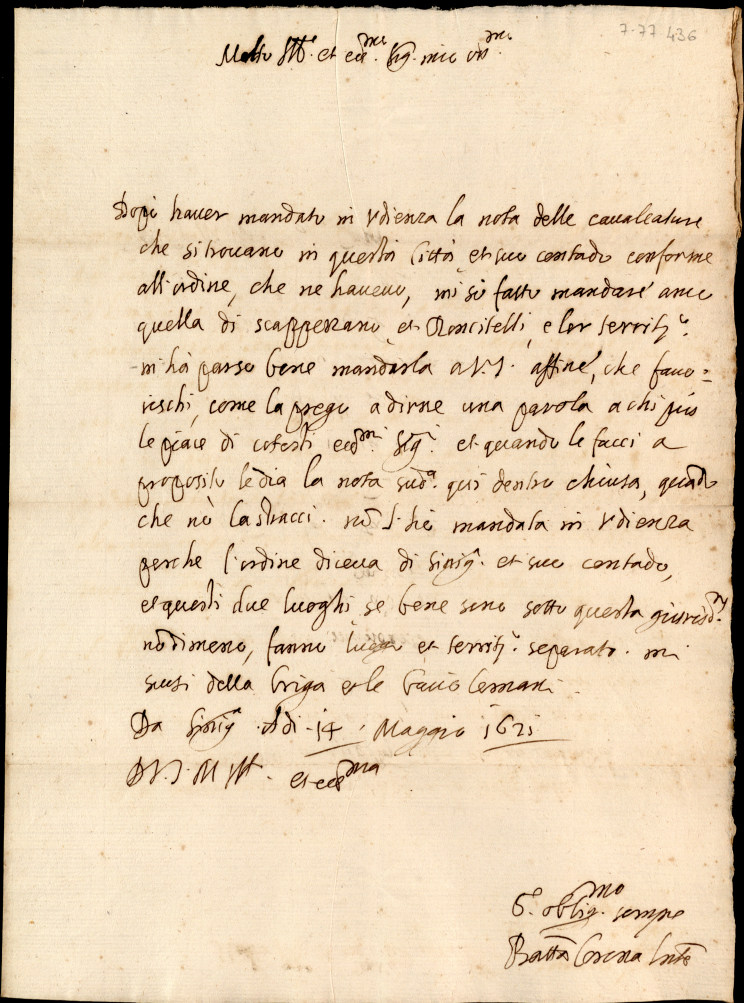 7-77 436
Molto Ill.e et ecc.mo Sig. mio oss.mo
Dopò haver mandato in Udienza la nota delle cavalcature
che si trovano in questa Città et suo contado conforme
all'ordine, che ne havevo, mi si fatto mandare anco
quella di scappezzano et Roncitelli, e lor territ.o
m'hà parso bene mandarla a V.S. affinè, che favo=
rischi, come la prego a dirne una parola a chi più
le piace di cotesti ecc.mi Sig.i et quando le facci a
proposito le dia la nota sud.a qui dentro chiusa, quādo
che nò la stracci. nō l'hò mandata in Udienza
perche l'ordine diceva di Sinig.a et suo contado,
et questi due luoghi se bene sono sotto questa giurisd.
nōdimeno, fanno et territ.o separato. mi
scusi della briga et le bacio le mani
Da Sinig.a Adì 14 Maggio 1621
D V.S. M Ill. et ecc.ma
S. oblig.mo sempre
Batta